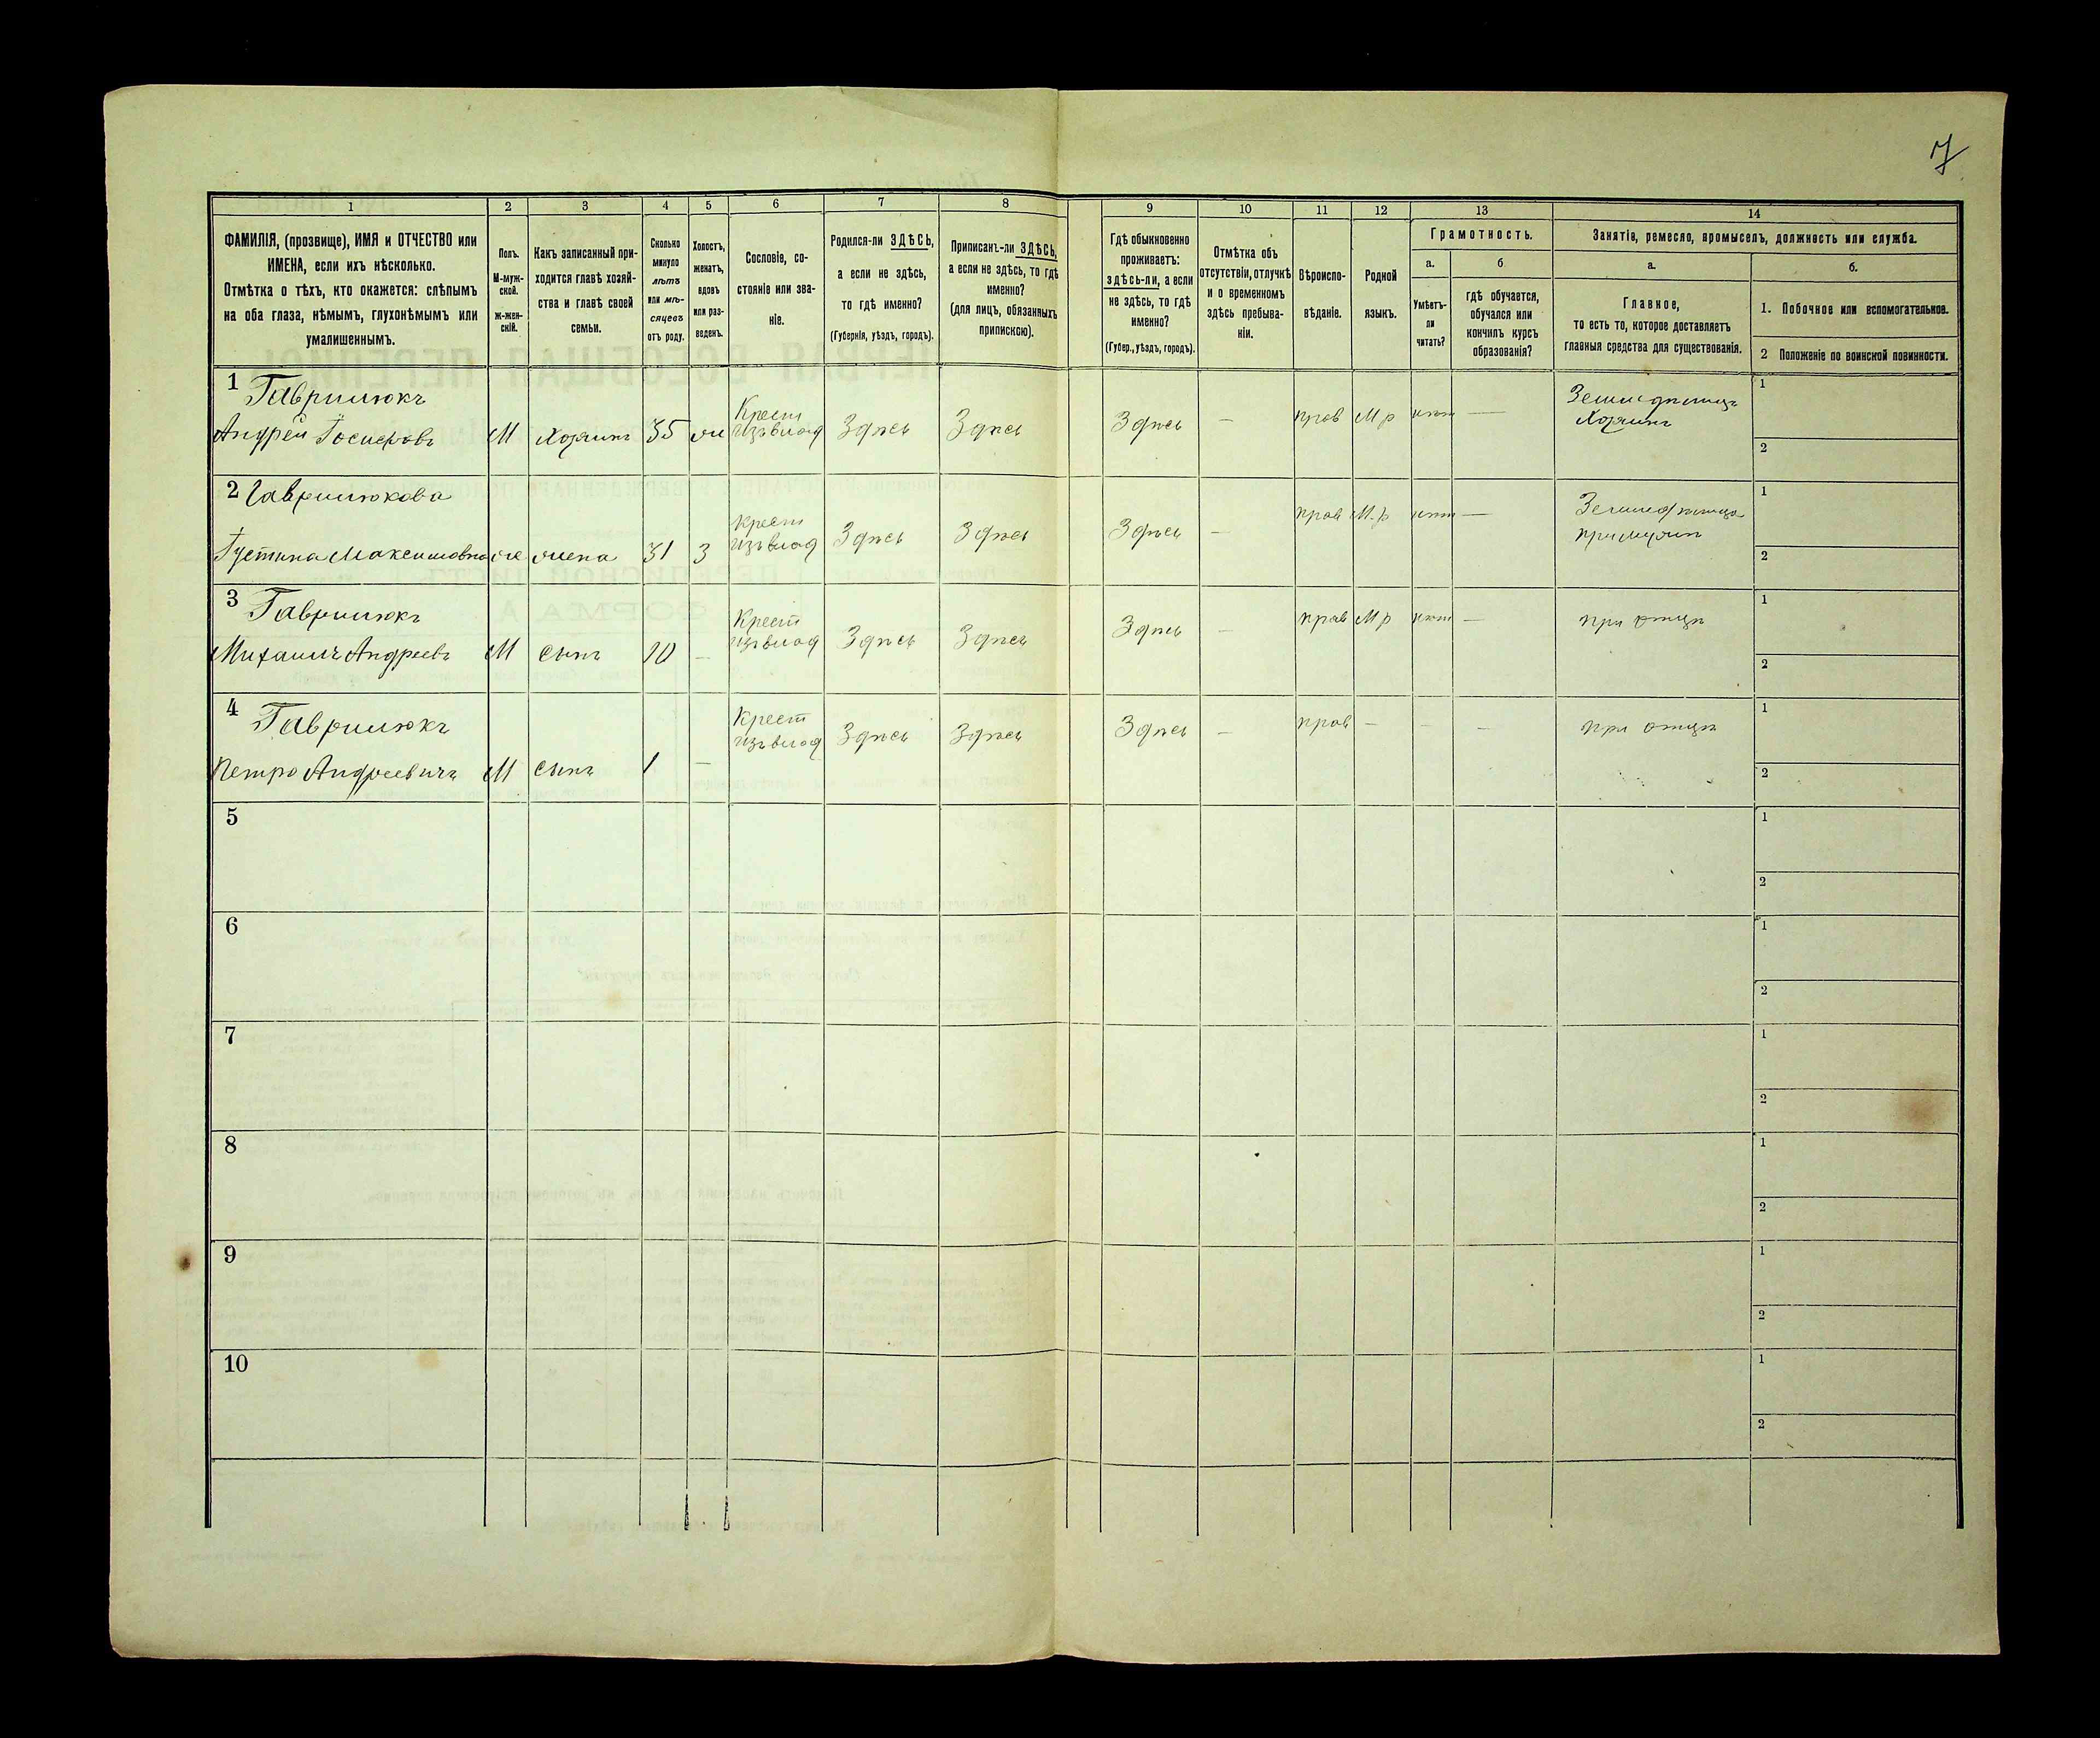 7
1 2 3 4 5 6 7 8 9 10 11 12 13 14
ФАМИЛІЯ, (прозвище), ИМЯ и ОТЧЕСТВО или
ИМЕНА, если ихъ нѣсколько.
Отмѣтка о тѣхъ, кто окажется: слѣпымъ
на оба глаза, нѣмымъ, глухонѣмымъ или
умалишеннымъ.
Полъ.
М-муж-
ской.
Ж-жен-
скій.
Какъ записанный при-
ходится главѣ хозяй-
ства и главѣ своей
семьи.
Сколько
минуло
лѣтъ
или мѣ-
сяцевъ
отъ роду.
Холостъ,
женатъ,
вдовъ
или раз-
веденъ.
Сословіе, со-
стояніе или зва-
ніе.
Родился-ли ЗДѢСЬ,
а если не здѣсь,
то гдѣ именно?
(Губернія, уѣздъ, городъ).
Приписанъ-ли ЗДѢСЬ,
а если не здѣсь, то гдѣ
именно?
(для лицъ, обязанныхъ
припискою).
Гдѣ обыкновенно
проживаетъ:
здѣсь-ли, а если
не здѣсь, то гдѣ
именно?
(Губер., уѣздъ, городъ).
Отмѣтка объ
отсутствіи, отлучкѣ
и о временномъ
здѣсь пребыва-
ніи.
Вѣроиспо-
вѣданіе.
Родной
языкъ.
Грамотность.
а.
Умѣетъ-
ли
читать?
б
гдѣ обучается,
обучался или
кончилъ курсъ
образованія?
Занятіе, ремесло, промыселъ, должность или служба.
а.
Главное,
то есть то, которое доставляетъ
главныя средства для существованія.
б.
1. Побочное или вспомогательное.
2 Положеніе по воинской повинности.
1 Гаврилюкъ
Андрей М Хозяинъ 35 ж Крест
изъ влад Здѣсь Здѣсь Здѣсь — прав М р нѣт — Земледѣлецъ
Хозяинъ
1
2
2 Гаврилюкова
Максимовна ж жена 31 З Крест
изъ влад Здѣсь Здѣсь Здѣсь — прав М.р нѣт —
при мужѣ
1
2
3 Гаврилюкъ
Михаилъ Андреевъ М сынъ 10 — Крест
изъ влад Здѣсь Здѣсь Здѣсь — прав М р нѣт — при отцѣ
1
2
4 Гаврилюкъ
Петро Андреевичъ М сынъ 1 — Крест
изъ влад Здѣсь Здѣсь Здѣсь — прав — — — при отцѣ
1
2
5
1
2
6
1
2
7
1
2
8
1
2
9
1
2
10
1
2